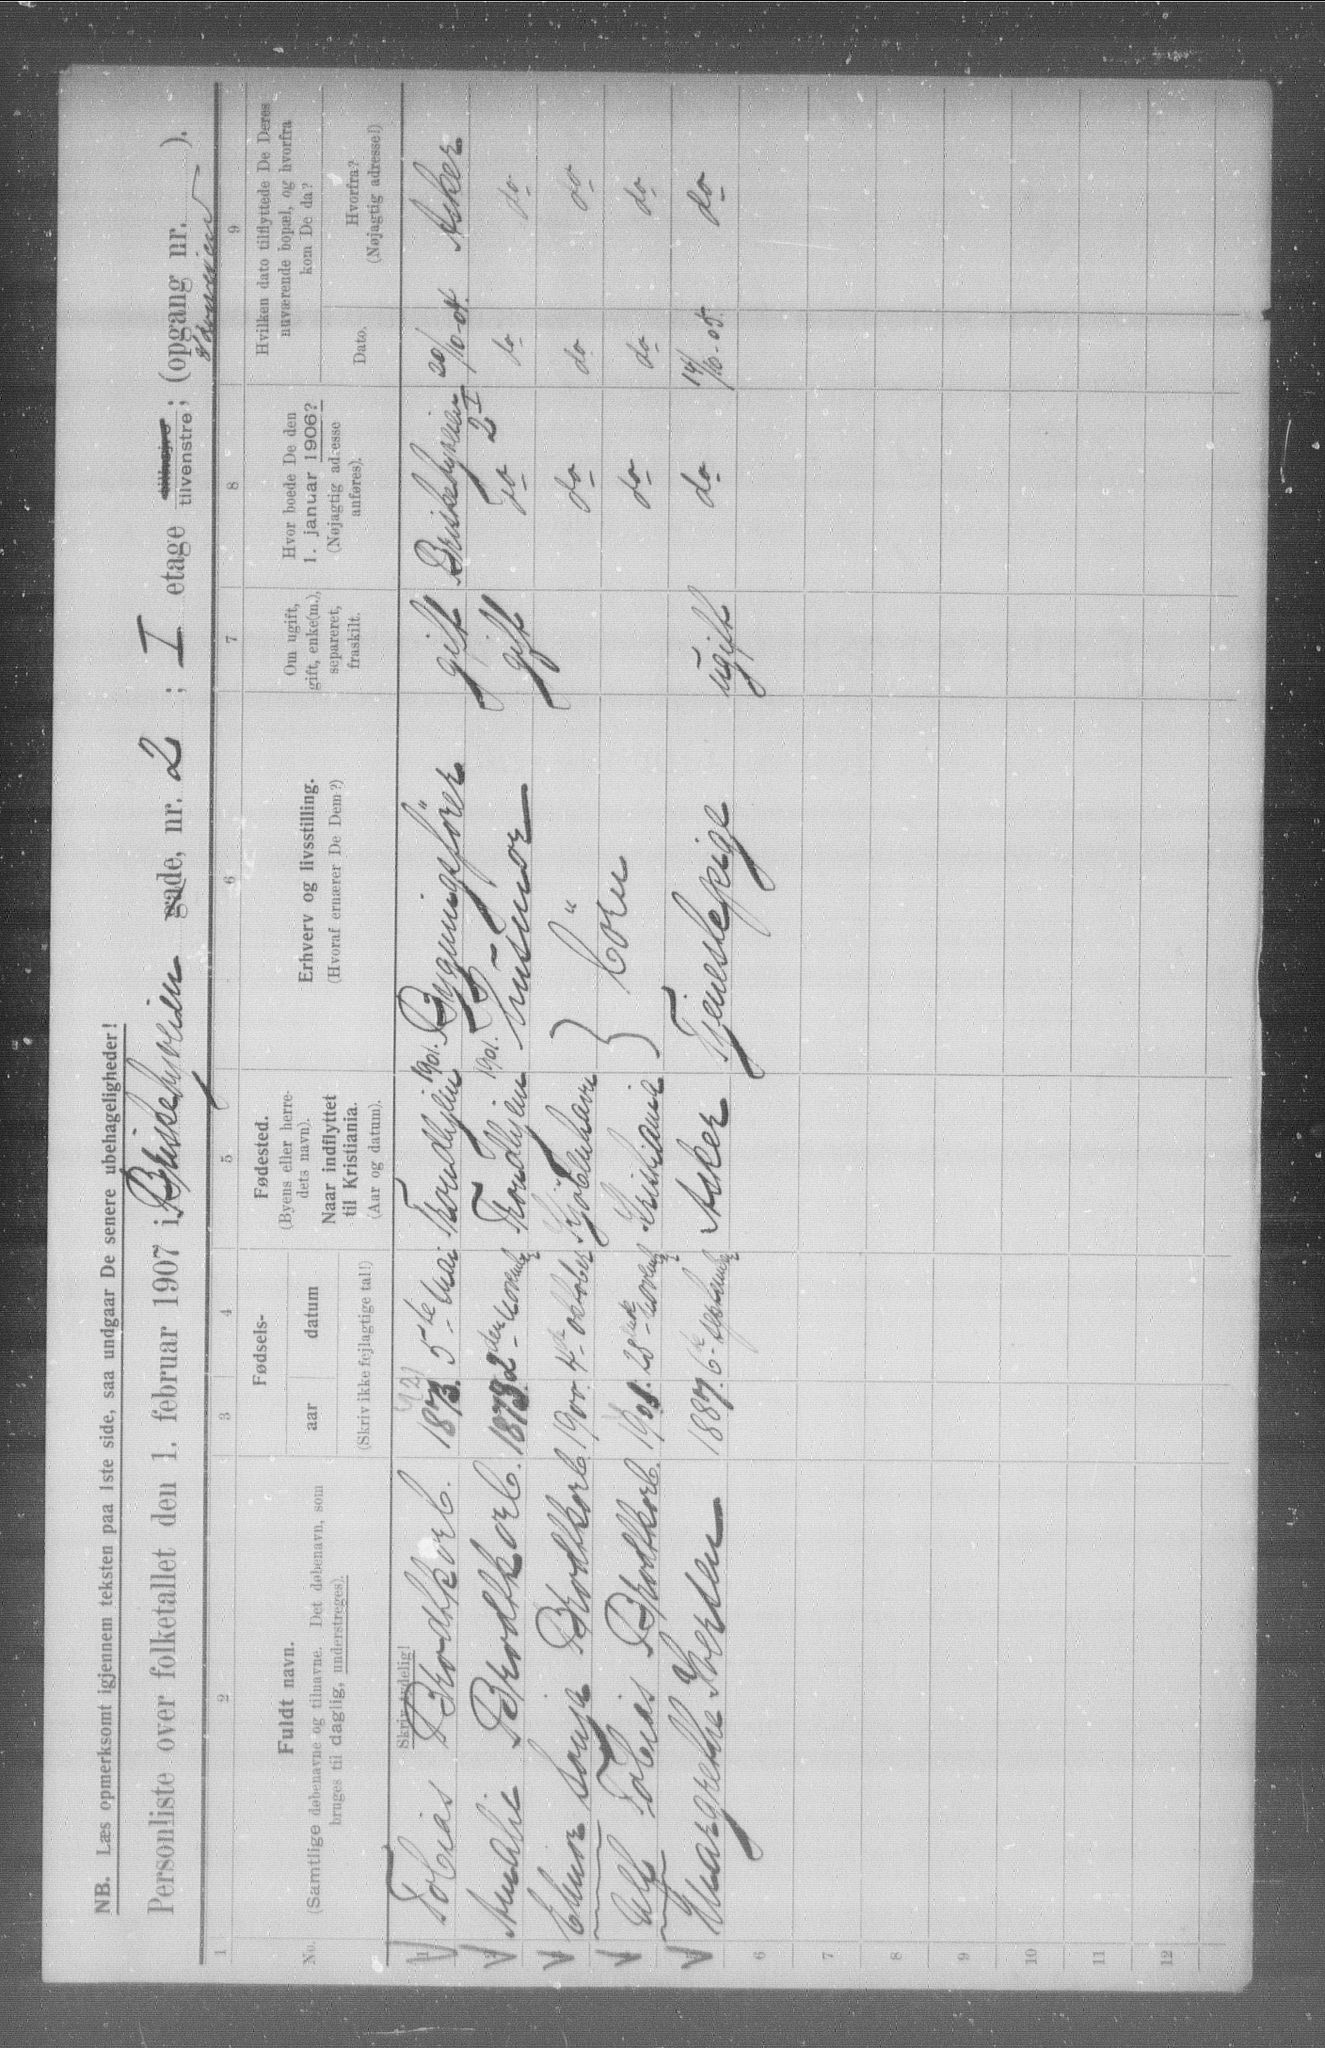 NB. Læs opmerksomt igjennem teksten paa 1ste side, saa undgaar De senere ubehageligheder!
Personliste over folketallet den 1. februar 1907 i Briskebyveien gade, nr. 2 ; I etage tilhøjre tilvenstre ; (opgang nr. ).
1 2 3 4 5 6 7 8 9
No.
Fuldt navn.
(Samtlige døbenavne og tilnavne. Det døbenavn, som
bruges til daglig, understreges).
Fødsels-
aar datum
(Skriv ikke fejlagtige tal!)
Fødested.
(Byens eller herre-
dets navn).
Naar indflyttet
til Kristiania.
(Aar og datum).
Erhverv og livsstilling.
(Hvoraf ernærer De Dem?)
Om ugift,
gift, enke(m.),
separeret,
fraskilt.
Hvor boede De den
1. januar 1906?
(Nøjagtig adresse
anføres).
Hvilken dato tilflyttede De Deres
nuværende bopæl, og hvorfra
kom De da?
Dato.
Hvorfra?
(Nøjagtig adresse!)
Skriv tydelig!
1 Tobias Brodtkorb. 1873. 5te Mai Trondhjem 1901. Bygningsfører gift Briskebyveien 2 I 20/10-04. Asker
Amalie Brodtkorb. 2den Novemb. Trondhjem 1901. Husmor gift do do do
Sonja Brodtkorb 1900. 4de October Kjøbenhavn } Börn do do do
Tobias Brodtkorb. Novemb. Kristiania do do do
Margrethe Iversen 1887. 6te Septemb. Asker Tjenestepige ugift do 14/10-05. do
6
7
8
9
10
11
12